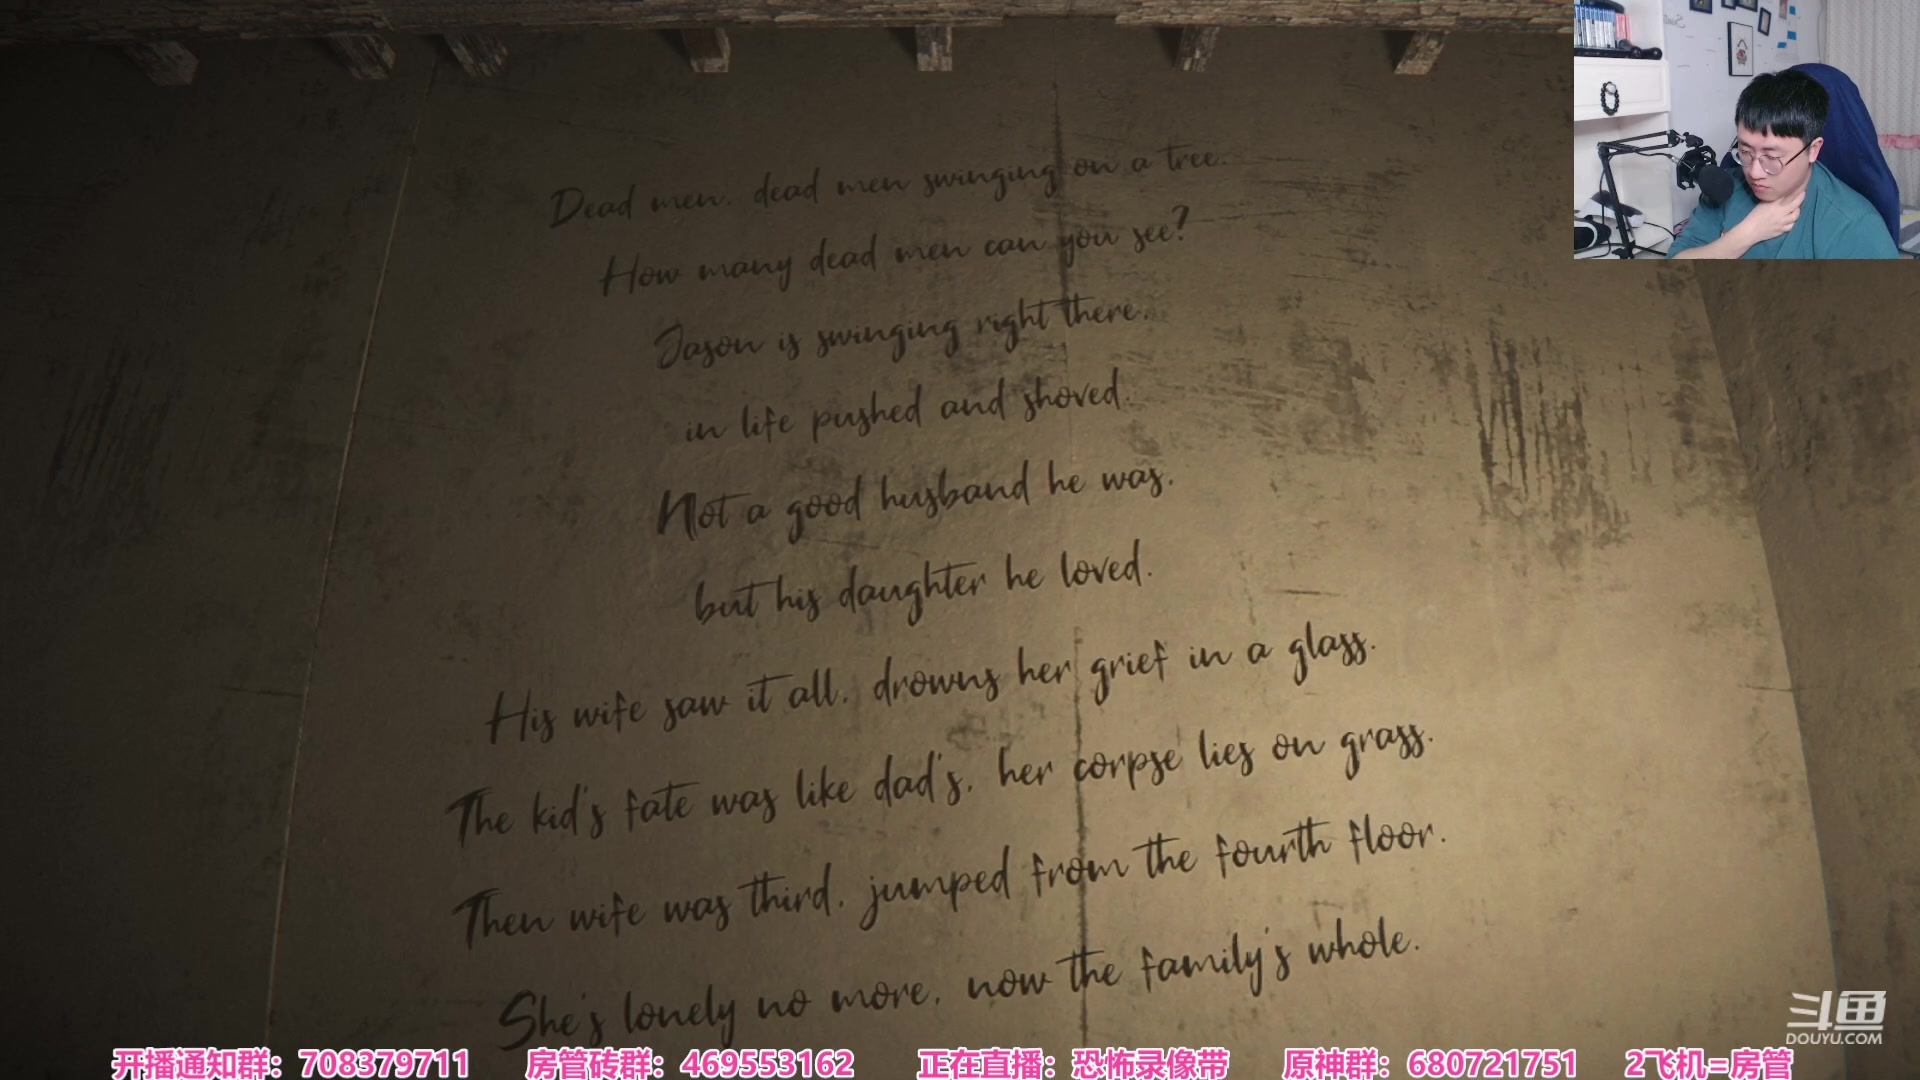 Dead men, dead men swinging on a tree.
How many dead men can you see?
Jason is swinging right there,
in life pushed and shoved.
Not a good husband he was,
but his daughter he loved.
His wife saw it all, drowns her grief in a glass.
The kid's fate was like dad's, her corpse lies on grass.
Then wife was third, jumped from the fourth floor.
She's lonely no more, now the family's whole.
斗鱼
DOUYU.COM
开播通知群：708379711 房管砖群：469553162 正在直播：恐怖录像带 原神群：680721751 2飞机=房管